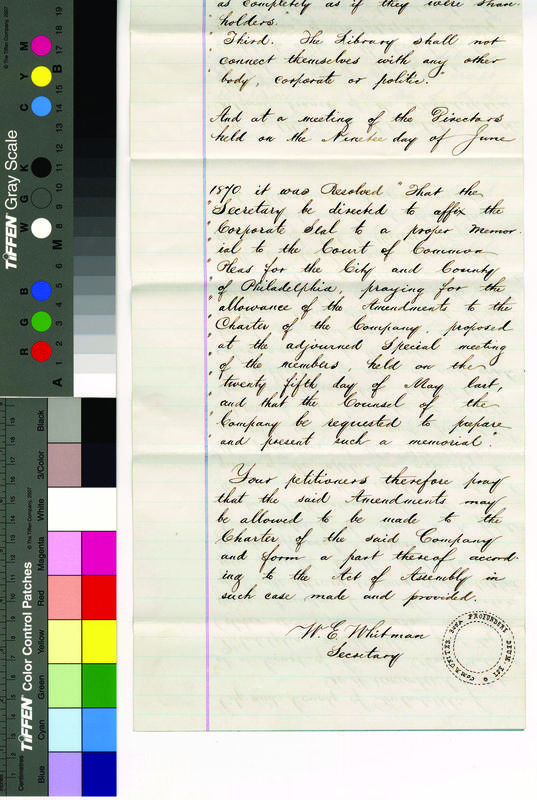 as completely as if they were share-
holders."
"Third. The Library shall not
connect themselves with any other
body, corporate or politic."
And at a meeting of the Directors
held on the Ninetee day of June
1870 it was Resolved "That the
"Secretary be directed to affix the
"Corporate Seal to a proper Memor-
"ial to the Court of Common
"Pleas for the City and County
"of Philadelphia, praying for the
"allowance of the Amendments to the
"Charter of the Company, proposed
"at the adjourned Special meeting
"of the members, held on the
"twenty fifth day of May last,
"and that the Counsel of the
"Company be requested to prepare
"and present such a memorial".
Your petitioners therefore pray
that the said Amendments may
be allowed to be made to the
Charter of the said Company
and form a part thereof accord-
ing to the Act of Assembly in
such case made and provided.
W. E. Whitman
Secretary
COMMUNITER BONA PROFUNDERE DEUM EST
TIFFEN Gray Scale
© The Tiffen Company, 2007
R G B W G K C Y M
A 1 2 3 4 5 6 M 8 9 10 11 12 13 14 15 B 17 18 19
TIFFEN Color Control Patches
© The Tiffen Company, 2007
Centimetres
Blue Cyan Green Yellow Red Magenta White 3/Color Black